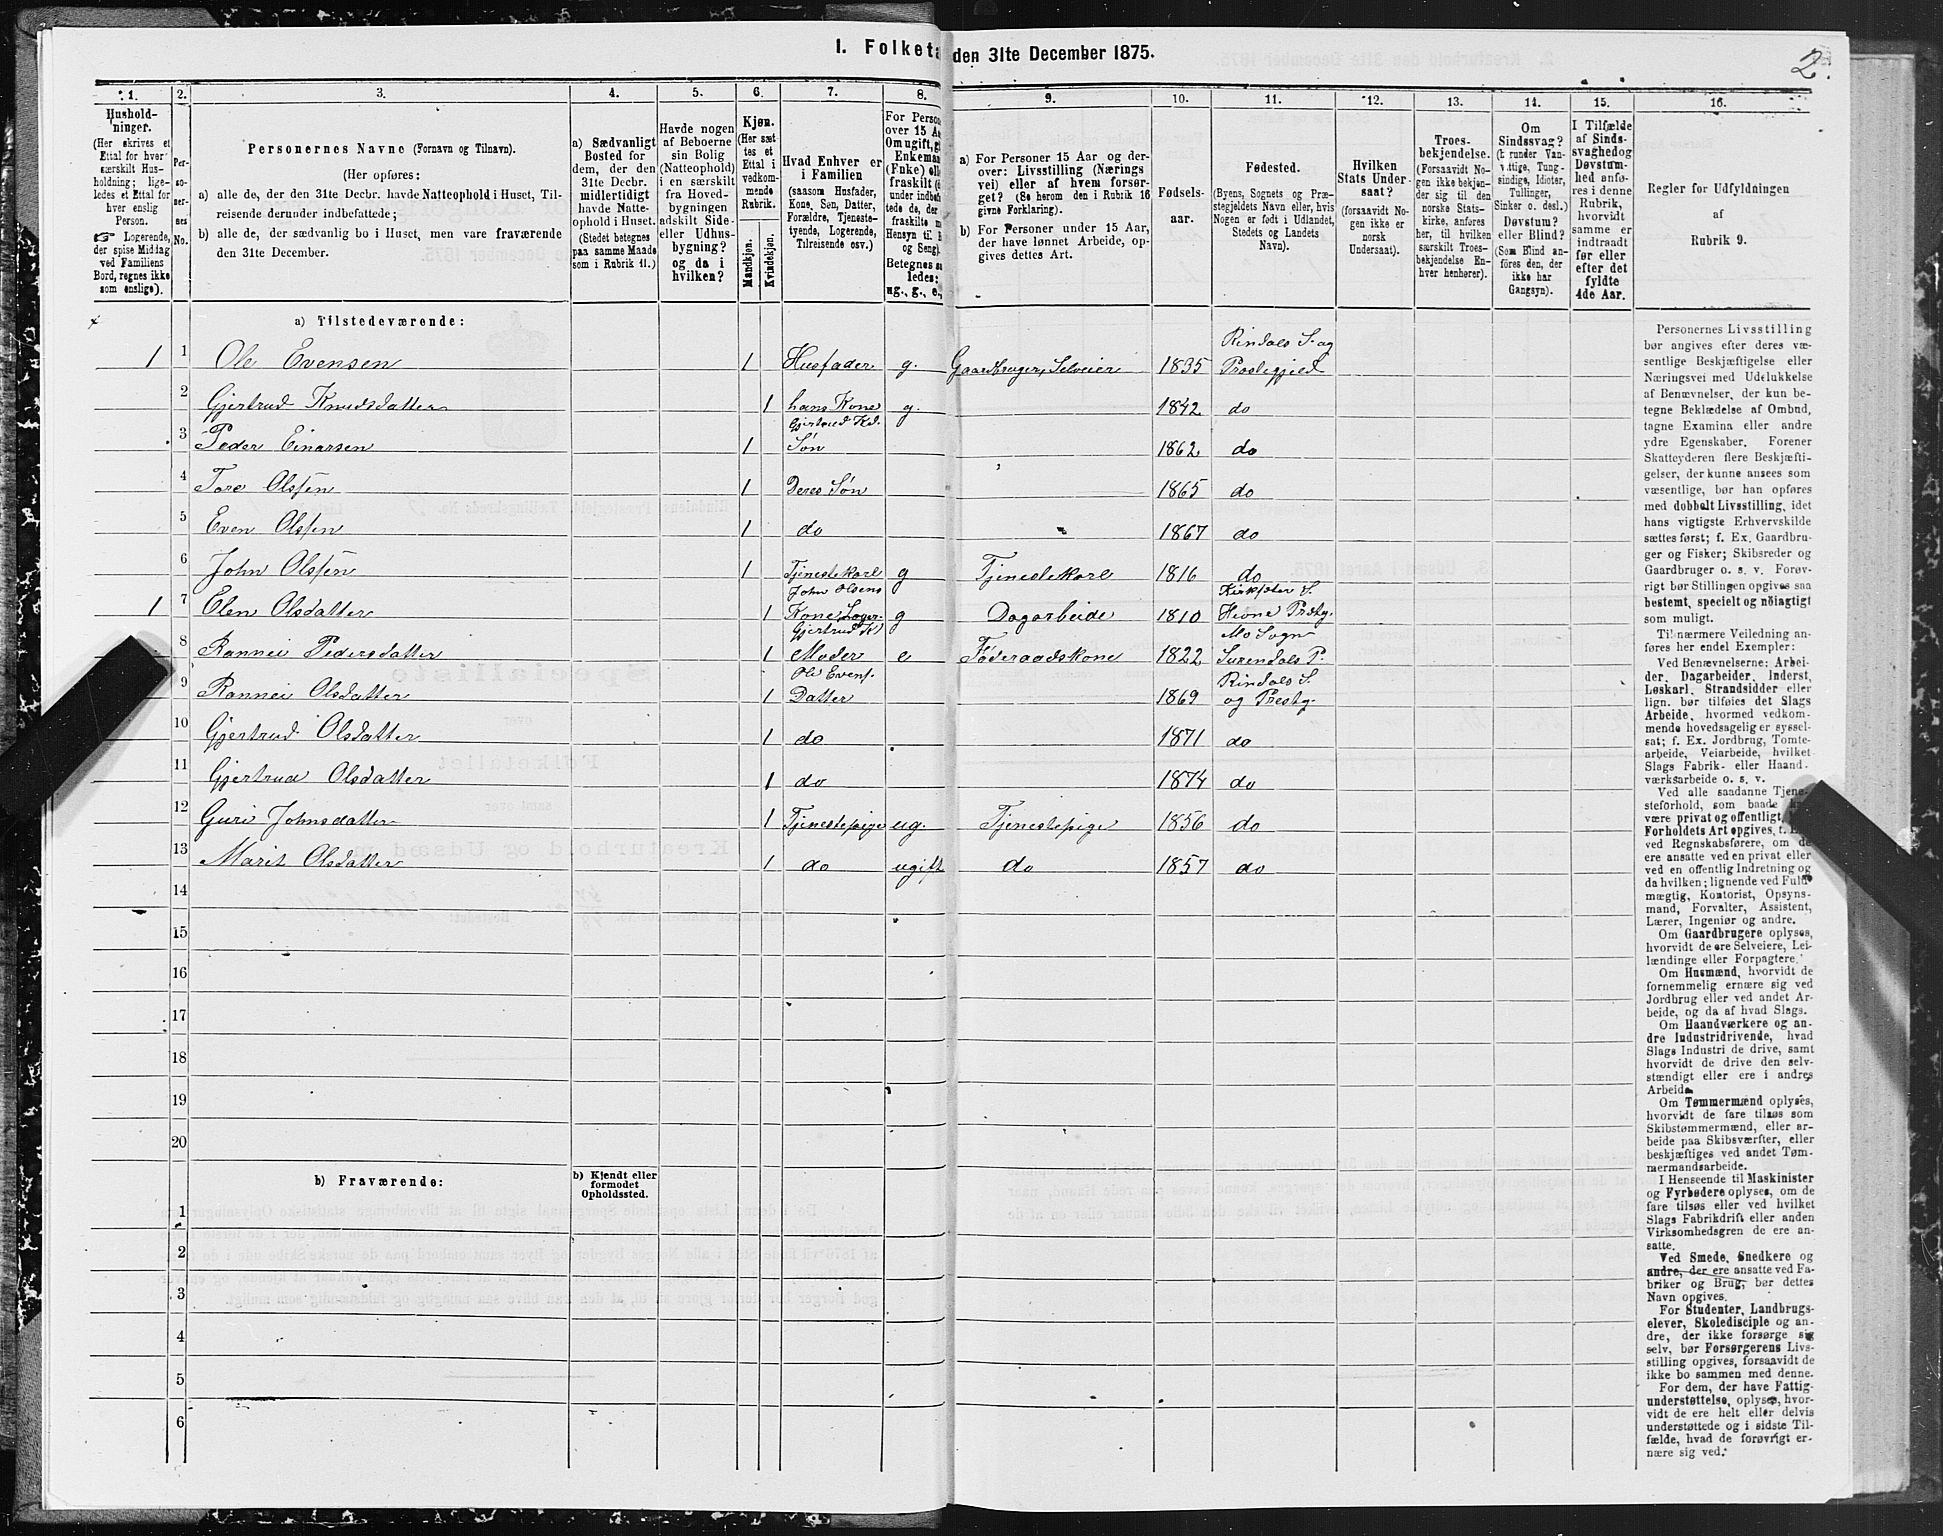 1. Folketa den 31te December 1875.
2.
1. 2. 3. 4. 5. 6. 7. 8. 9. 10. 11. 12. 13. 14. 15. 16.
Hushold-
ninger.
(Her skrives et
Ettal for hver
særskilt Hus-
holdning; lige-
ledes et Ettal for
hver enslig
Person.
☞ Logerende,
der spise Middag
ved Familiens
Bord, regnes ikke
som enslige).
Per-
so-
ner-
nes
No.
Personernes Navne (Fornavn og Tilnavn).
(Her opføres:
a) alle de, der den 31te Decbr. havde Natteophold i Huset, Til-
reisende derunder indbefattede;
b) alle de, der sædvanlig bo i Huset, men vare fraværende
den 31te December.
a) Sædvanligt
Bosted for
dem, der den
31te Decbr.
midlertidigt
havde Natte-
ophold i Huset.
(Stedet betegnes
paa samme Maade
som i Rubrik 11.)
Havde nogen
af Beboerne
sin Bolig
(Natteophold)
i en særskilt
fra Hoved-
bygningen
adskilt Side-
eller Udhus-
bygning?
og da i
hvilken?
Kjøn.
(Her sæt-
tes et
Ettal i
vedkom-
mende
Rubrik.
Mandkjøn.
Kvindekjøn.
Hvad Enhver er
i Familien
(saasom Husfader,
Kone, Søn, Datter,
Forældre, Tjeneste-
tyende, Logerende,
Tilreisende osv.)
For Person
over 15 Aa
Om ugift, gi
Enkeman
(Enke) elle
fraskilt (
under indbe
tede de, der
fraskilte m
Hensyn til B
og Seng).
Betegnes sa
ledes:
ug., g., e.,
a) For Personer 15 Aar og der-
over: Livsstilling (Nærings
vei) eller af hvem forsør-
get? (Se herom den i Rubrik 16
givne Forklaring).
b) For Personer under 15 Aar,
der have lønnet Arbeide, op-
gives dettes Art.
Fødsels-
aar.
Fødested.
(Byens, Sognets og Præ-
stegjeldets Navn eller, hvis
Nogen er født i Udlandet,
Stedets og Landets
Navn).
Hvilken
Stats Under-
saat?
(forsaavidt No-
gen ikke er
norsk
Undersaat).
Troes-
bekjendelse.
(Forsaavidt No-
gen ikke bekjen-
der sig til den
norske Stats-
kirke, anføres
her, til hvilken
særskilt Troes-
bekjendelse En-
hver henhører).
Om
Sindssvag?
(herunder Van-
vittige, Tung-
sindige, Idioter,
Tullinger,
Sinker o. desl.)
Døvstum?
eller Blind?
(Som Blind an-
føres den, der
ikke har
Gangsyn).
I Tilfælde
af Sinds-
svaghed og
Døvstum-
hed anfø-
res i denne
Rubrik,
hvorvidt
samme er
indtraadt
før eller
efter det
fyldte
4de Aar.
Regler for Udfyldningen
af
Rubrik 9.
a) Tilstedeværende:
1 1 Ole Evensen 1 Husfader g. Gaardbruger, Selveier 1835 Rindals S. og Præstegjeld
2 Gjertrud Knudsdatter 1 hans Kone g. 1842 do
3 Peder Einarsen 1 Gjertrud Kd. Søn 1862 do
4 Tore Olsen 1 Deres Søn 1865 do
5 Even Olsen 1 do 1867 do
6 John Olsen 1 Tjenestekarl g Tjenestekarl 1816 do
1 7 Elen Olsdatter 1 John Olsens Kone, Loger. g Dagarbeide 1810 Hevne Præstg.
8 Rannei Pedersdatter 1 Gjertrud K Moder e Føderaadskone 1822 Mo Sogn Surendals P.
9 Rannei Olsdatter 1 Ole Evens. Datter 1869 Rindals S. og Præstg.
10 Gjertrud Olsdatter 1 do 1871 do
11 Gjertrud Olsdatter 1 do 1874 do
12 Guri Johnsdatter 1 Tjenestepige ug. Tjenestepige 1856 do
13 Marit Olsdatter 1 do ugift do 1857 do
14
15
16
17
18
19
20
b) Fraværende:
b) Kjendt eller
formodet
Opholdssted.
1
2
3
4
5
6
Personernes Livsstilling
bør angives efter deres væ-
sentlige Beskjæftigelse eller
Næringsvei med Udelukkelse
af Benævnelser, der kun be-
tegne Beklædelse af Ombud,
tagne Examina eller andre
ydre Egenskaber. Forener
Skatteyderen flere Beskjæfti-
gelser, der kunne ansees som
væsentlige, bør han opføres
med dobbelt Livsstilling, idet
hans vigtigste Erhvervskilde
sættes først; f. Ex. Gaardbru-
ger og Fisker; Skibsreder og
Gaardbruger o. s. v. Forøv-
rigt bør Stillingen opgives saa
bestemt, specielt og nöiagtigt
som muligt.
Til nærmere Veiledning an-
føres her endel Exempler:
Ved Benævnelserne: Arbei-
der, Dagarbeider, Inderst,
Løskarl, Strandsidder eller
lign. bør tilføies det Slags
Arbeide, hvormed vedkom-
mende hovedsagelig er syssel-
sat; f. Ex. Jordbrug, Tomte-
arbeide, Veiarbeide, hvilket
Slags Fabrik- eller Haand-
værksarbeide o. s. v.
Ved alle saadanne Tjene-
steforhold, som baade
være privat og offentligt,
Forholdets Art opgives,
ved Regnskabsførere, om de
ere ansatte ved en privat eller
ved en offentlig Indretning og
da hvilken; lignende ved Fuld-
mægtig, Kontorist, Opsyns-
mand, Forvalter, Assistent,
Lærer, Ingeniør og andre.
Om Gaardbrugere oplyses,
hvorvidt de ere Selveiere, Lei-
lændinge eller Forpagtere.
Om Husmænd, hvorvidt de
fornemmelig ernære sig ved
Jordbrug eller ved andet Ar-
beide, og da af hvad Slags.
Om Haandværkere og an-
dre Industridrivende, hvad
Slags Industri de drive, samt
hvorvidt de drive den selv-
stændigt eller ere i andres
Arbeide.
Om Tømmermænd oplyses,
hvorvidt de fare tilsøs som
Skibstømmermænd, eller ar-
beide paa Skibsværfter, eller
beskjæftiges ved andet Tøm-
mermandsarbeide.
I Henseende til Maskinister
og Fyrbødere oplyses, om de
fare tilsøs eller ved hvilket
Slags Fabrikdrift eller anden
Virksomhedsgren de ere an-
satte.
Ved Smede, Snedkere og
andre, der ere ansatte ved Fa-
briker og Brug, bør dettes
Navn opgives.
For Studenter, Landbrugs-
elever, Skoledisciple og an-
dre, der ikke forsørge sig
selv, bør Forsørgerens Livs-
stilling opgives, forsaavidt de
ikke bo sammen med denne.
For dem, der have Fattig-
understøttelse, oplyses, hvor-
vidt de ere helt eller delvis
understøttede og i sidste Til-
fælde, hvad de forøvrigt er-
nære sig ved.